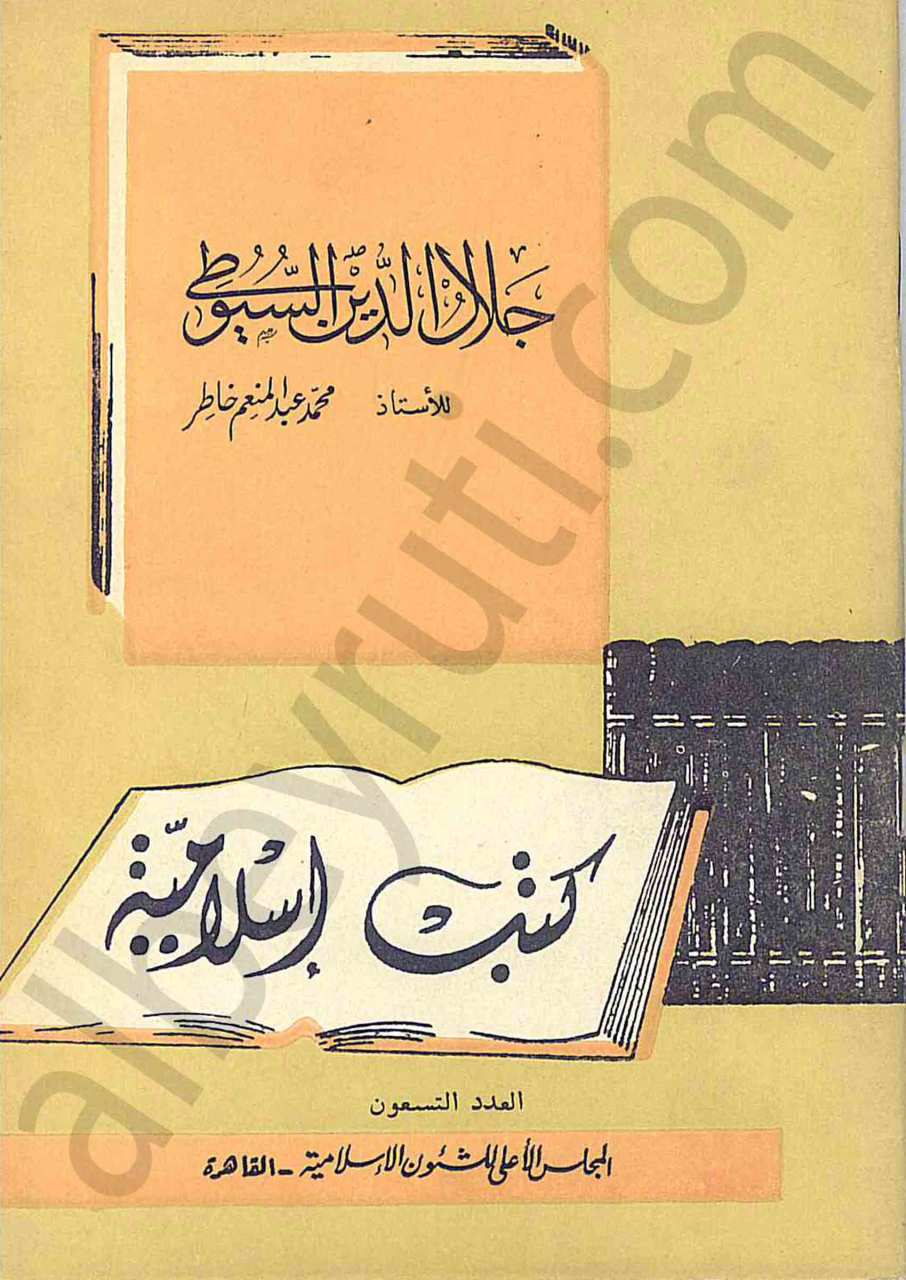 جَلَالُ الدِّينِ السُّيُوطِي
للأستاذ محمّد عبد المنعم خاطر
كتب إسلاميّة
العدد التسعون
المجلس الأعلى للشئون الإسلامية - القاهرة
albeyruti.com